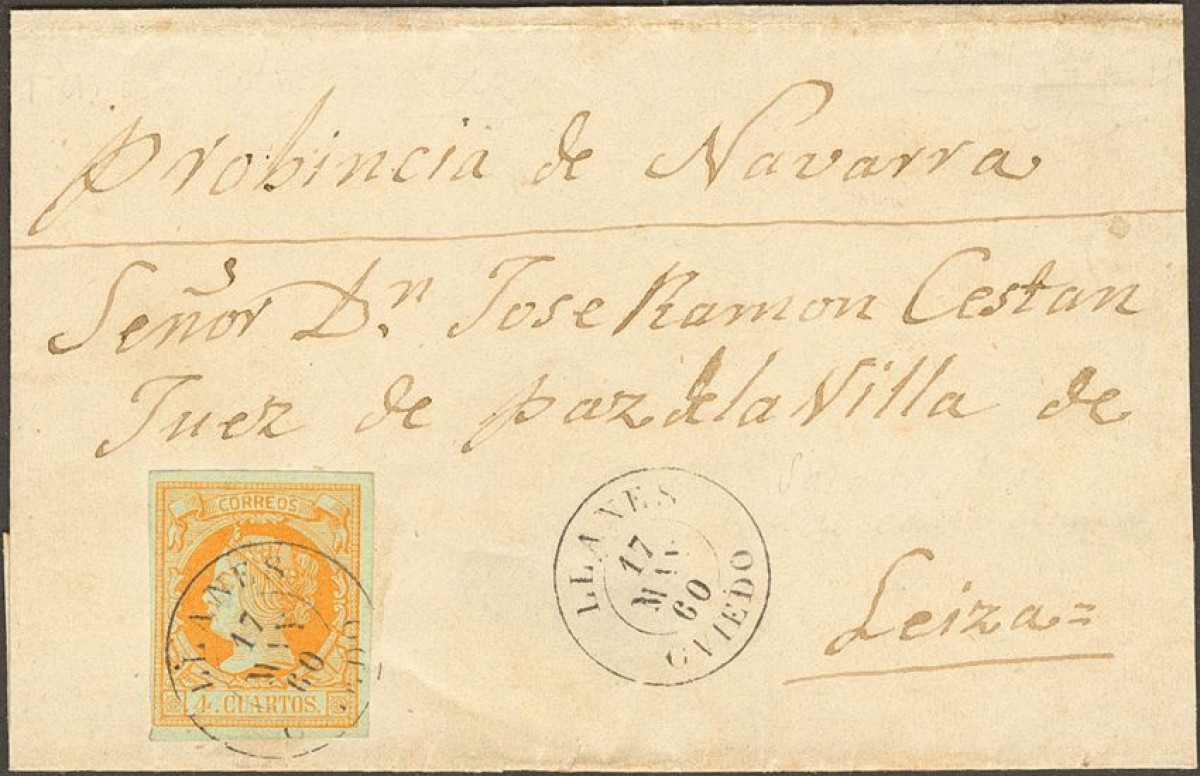 Probincia de Navarra
Señor Dⁿ. Jose Ramon Cestan
Juez de paz de la Villa de
Leiza=
CORREOS
4 CUARTOS.
LLANES
17
60
LLANES
17
60
OVIEDO